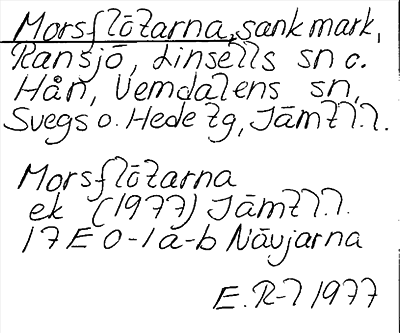 Morsflötarna, sank mark,
Ransjö, Linsells sn o.
Hån, Vemdalens sn,
Svegs o. Hede tg, Jämtl.l.
Morsflötarna
ek (1977) Jämtl.l.
17E 0-1a-b Nävjarna
E.R-l 1977